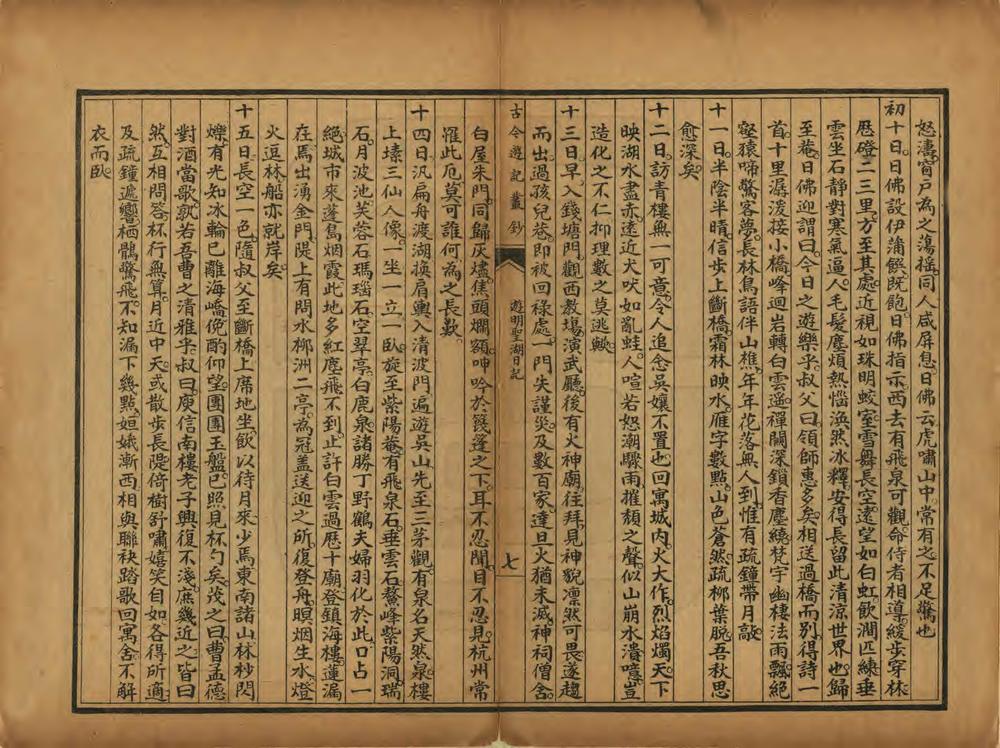 怒濤窗戶為之蕩搖同人咸屏息日佛云虎嘯山中常有之不足驚也
初十日日佛設伊蒲饌既飽日佛指示西去有飛泉可觀命侍者相導緩步穿林
歷磴二三里方至其處近視如珠明蛟室雪舞長空遠望如白虹飲澗匹練垂
雲坐石靜對寒氣逼人毛髮塵煩熱惱渙然冰釋安得長留此清涼世界也歸
至菴日佛迎謂曰今日之遊樂乎叔父曰領師惠多矣相送過橋而別得詩一
首十里潺湲接小橋峰迴岩轉白雲遙禪關深鎖香塵繞梵宇幽棲法雨飄絕
壑猿啼驚客夢長林鳥語伴山樵年年花落無人到惟有疏鐘帶月敲
十一日半陰半晴信步上斷橋霜林映水雁字數點山色蒼然疏柳葉脫吾秋思
愈深矣
十二日訪青樓無一可意令人追念吳孃不置也回寓城內火大作烈焰燭天下
映湖水盡赤遠近犬吠如亂蛙人喧若怒潮驟雨摧頹之聲似山崩水潰噫豈
造化之不仁抑理數之莫逃歟
十三日早入錢塘門觀西教場演武廳後有火神廟往拜見神貌凜然可畏遂趨
而出過孩兒巷即被回祿處一門失謹災及數百家達旦火猶未滅神祠僧舍
古今遊記叢鈔
遊明聖湖日記
七
白屋朱門同歸灰燼焦頭爛額呻吟於籧篷之下耳不忍聞目不忍見杭州常
罹此厄莫可誰何為之長歎
十四日汎扁舟渡湖換肩輿入清波門遍遊吳山先至三茅觀有泉名天然泉樓
上塐三仙人像一坐一立一臥旋至紫陽菴有飛泉石垂雲石鰲峰紫陽洞瑞
石月波池芙蓉石瑪瑙石空翠亭白鹿泉諸勝丁野鶴夫婦羽化於此口占一
絕城市來蓬島烟霞此地多紅塵飛不到止許白雲過歷十廟登鎮海樓蓮漏
在焉出湧金門隄上有問水柳洲二亭為冠蓋送迎之所復登舟暝烟生水燈
火逗林船亦就岸矣
十五日長空一色隨叔父至斷橋上席地坐飲以待月來少焉東南諸山林杪閃
爍有光知冰輪已離海嶠俛酌仰望團團玉盤已照見杯勺矣茂之曰曹孟德
對酒當歌孰若吾曹之清雅乎叔曰庾信南樓老子興復不淺庶幾近之皆曰
然互相問答杯行無算月近中天或散步長隄倚樹舒嘯嬉笑自如各得所適
及疏鐘遞響栖鶻驚飛不知漏下幾點姮娥漸西相與聯袂踏歌回寓舍不解
衣而臥